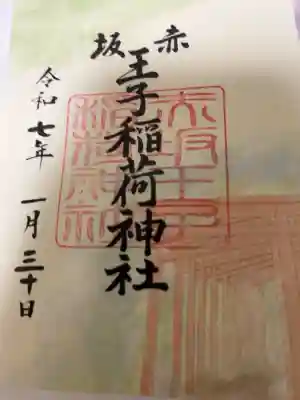 赤坂
王子稲荷神社
令和七年 一月三十日